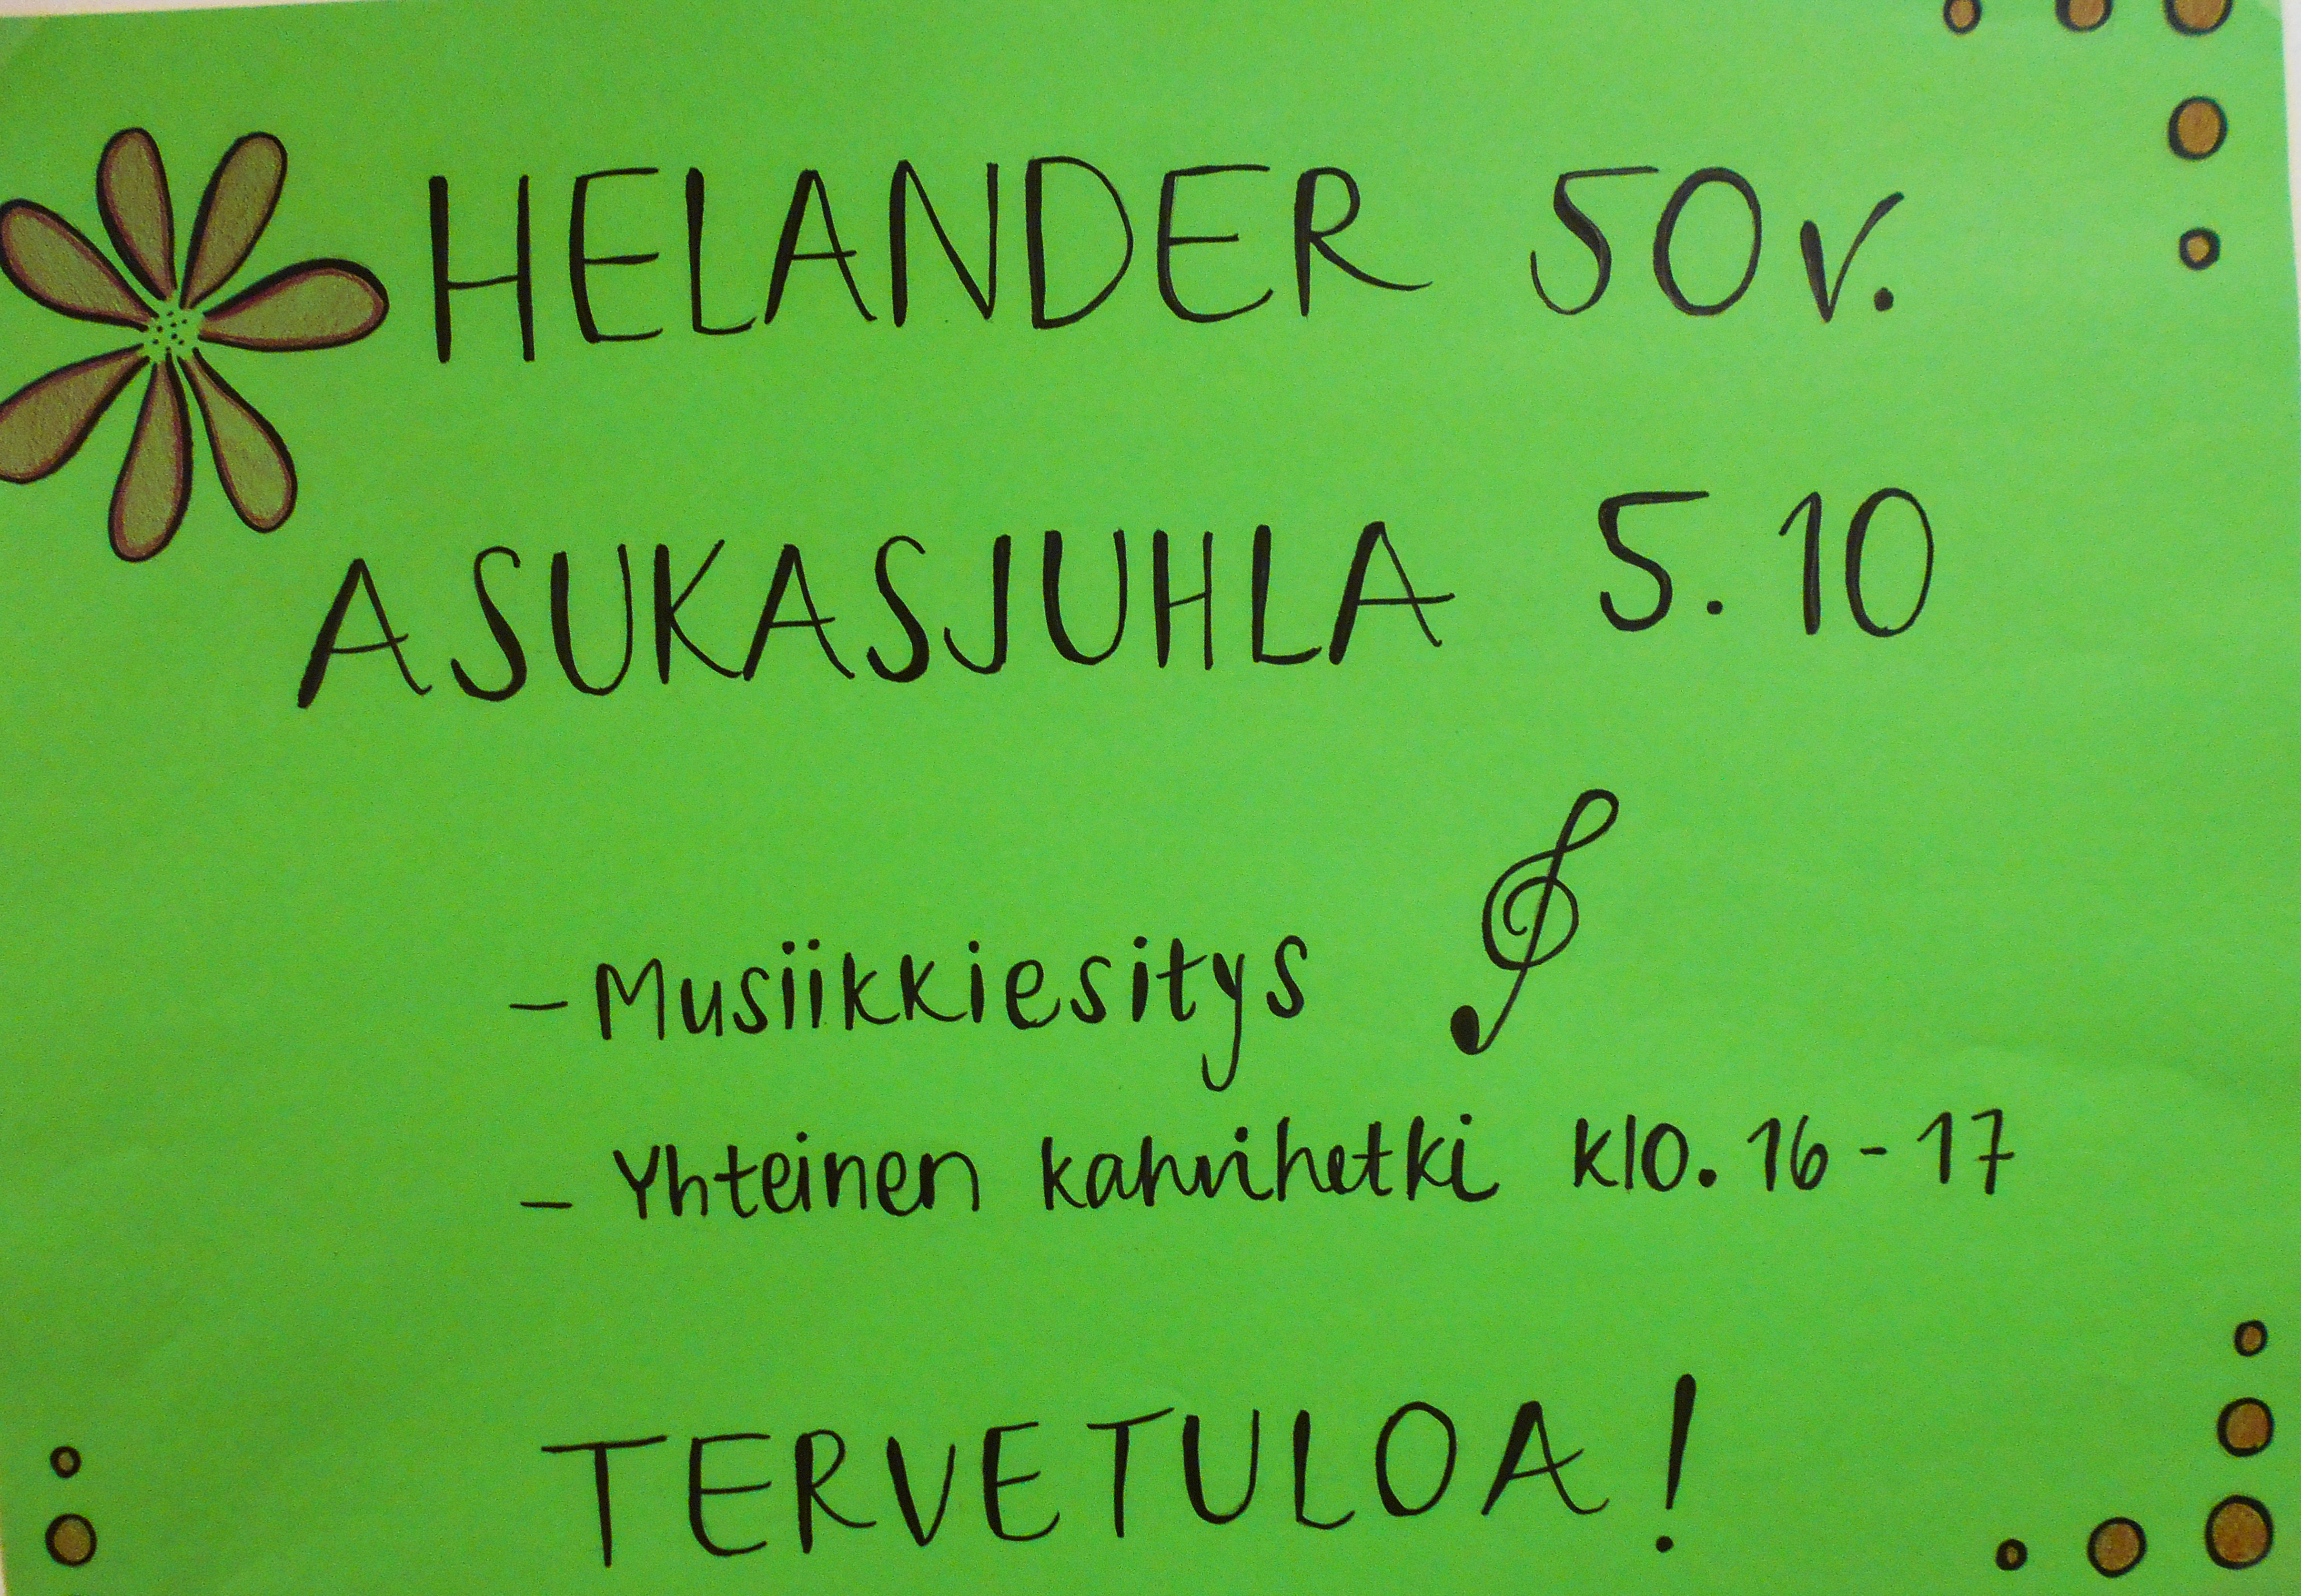 HELANDER 50v.
ASUKASJUHLA 5.10
- Musiikkiesitys
- Yhteinen kahvihetki klo. 16-17
TERVETULOA!